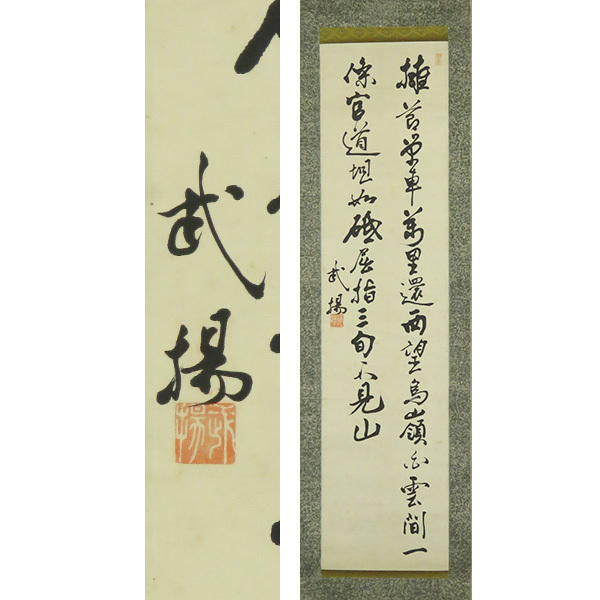 武
揚
武揚
擁節單車萬里還西望烏嶺白雲間一
條官道坦如砥屈指三旬不見山
武揚